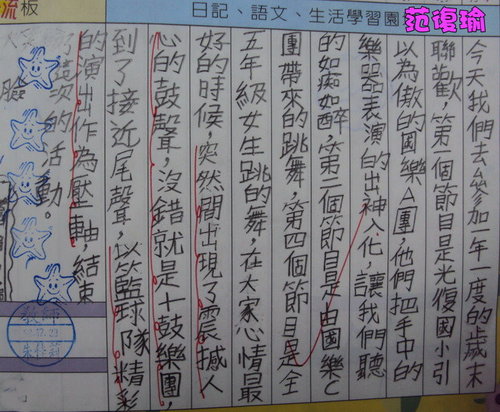 流板
日記、語文、生活學習園
范復瑜
今天我們去參加一年一度的歲末
聯歡,第一個節目是光復國小引
以為傲的國樂A團,他們把手中的
樂器表演的出神入化,讓我們聽
的如痴如醉,第二個節目是由國樂C
團帶來的跳舞,第四個節目是全
五年級女生跳的舞,在大家心情最
好的時候,突然間出現了震撼人
心的鼓聲,沒錯就是十鼓樂團,
到了接近尾聲,以籃球隊精彩
的演出作為壓軸,結束
次的活動。
臉
教師